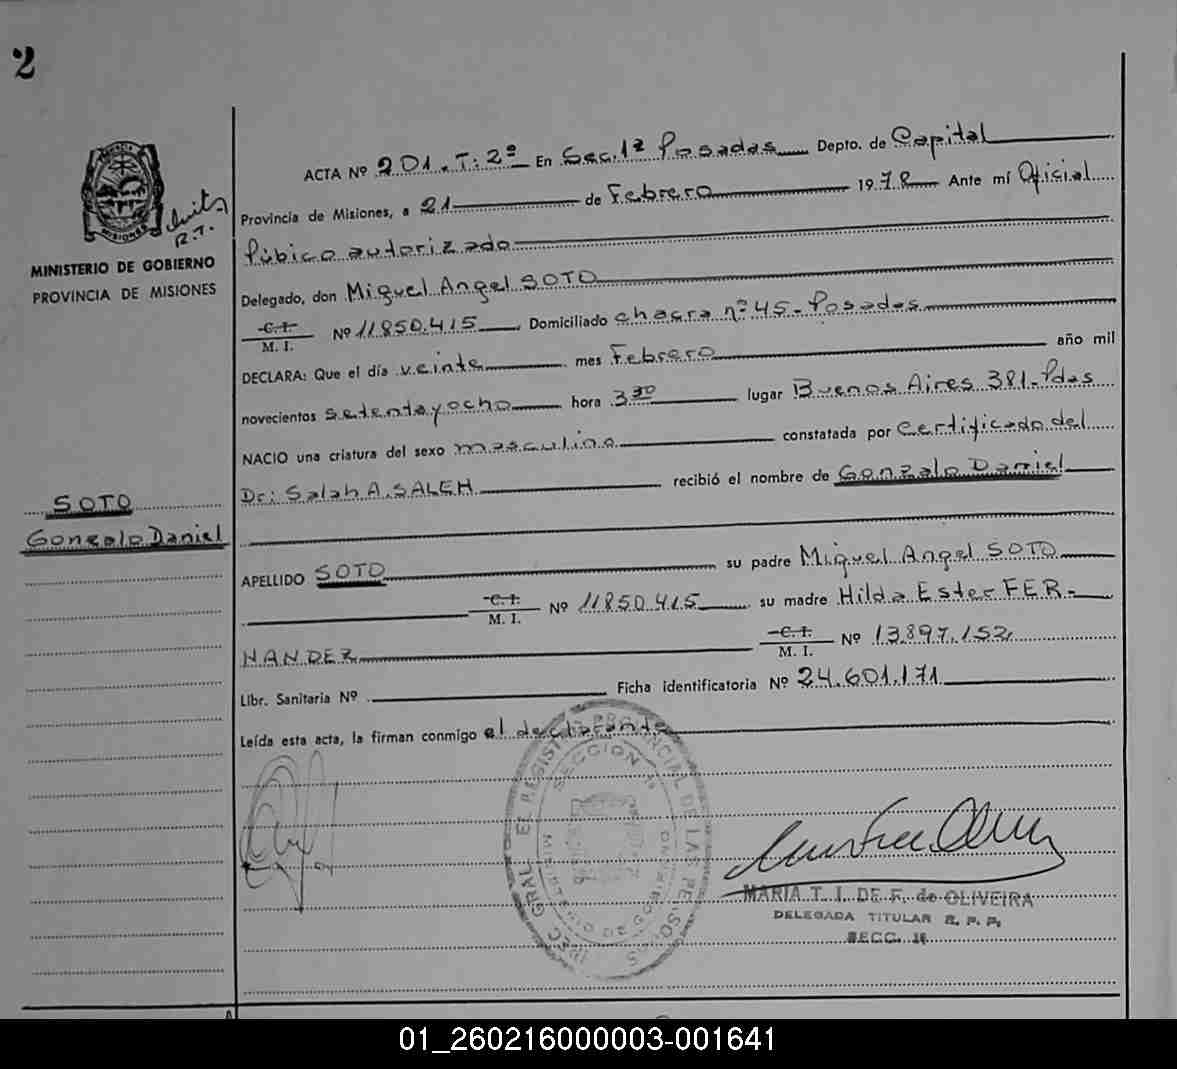 2
ACTA Nº 201. T: 2º En Sec. 1ª Posadas Depto. de Capital
Provincia de Misiones, a 21 de Febrero 1978 Ante mí Oficial
Púbico autorizado
Delegado, don Miguel Angel SOTO
C.I.
M. I.
Nº 11850.415 Domiciliado chacra nº 45 - Posadas
DECLARA: Que el día veinte mes Febrero año mil
novecientos setenta y ocho hora 3 30 lugar Buenos Aires 381 - Pdas
NACIO una criatura del sexo masculino constatada por Certificado del
Dr: Salah A. SALEH recibió el nombre de Gonzalo Daniel
APELLIDO SOTO su padre Miguel Angel SOTO
C.I.
M. I.
Nº 11850.415 su madre Hilda Ester FER-
NANDEZ
C.I.
M. I.
Nº 13.897.152
Libr. Sanitaria Nº Ficha identificatoria Nº 24.601.171
Leída esta acta, la firman conmigo el declarante
MISIONES
R.T.
MINISTERIO DE GOBIERNO
PROVINCIA DE MISIONES
SOTO
Gonzalo Daniel
GRAL EL REGISTRO PROVINCIAL DE LAS PERSONAS
SECCION 1ª
MARIA T. I. DE F. de OLIVEIRA
DELEGADA TITULAR R. P. P.
SECC. 1ª
01_260216000003-001641